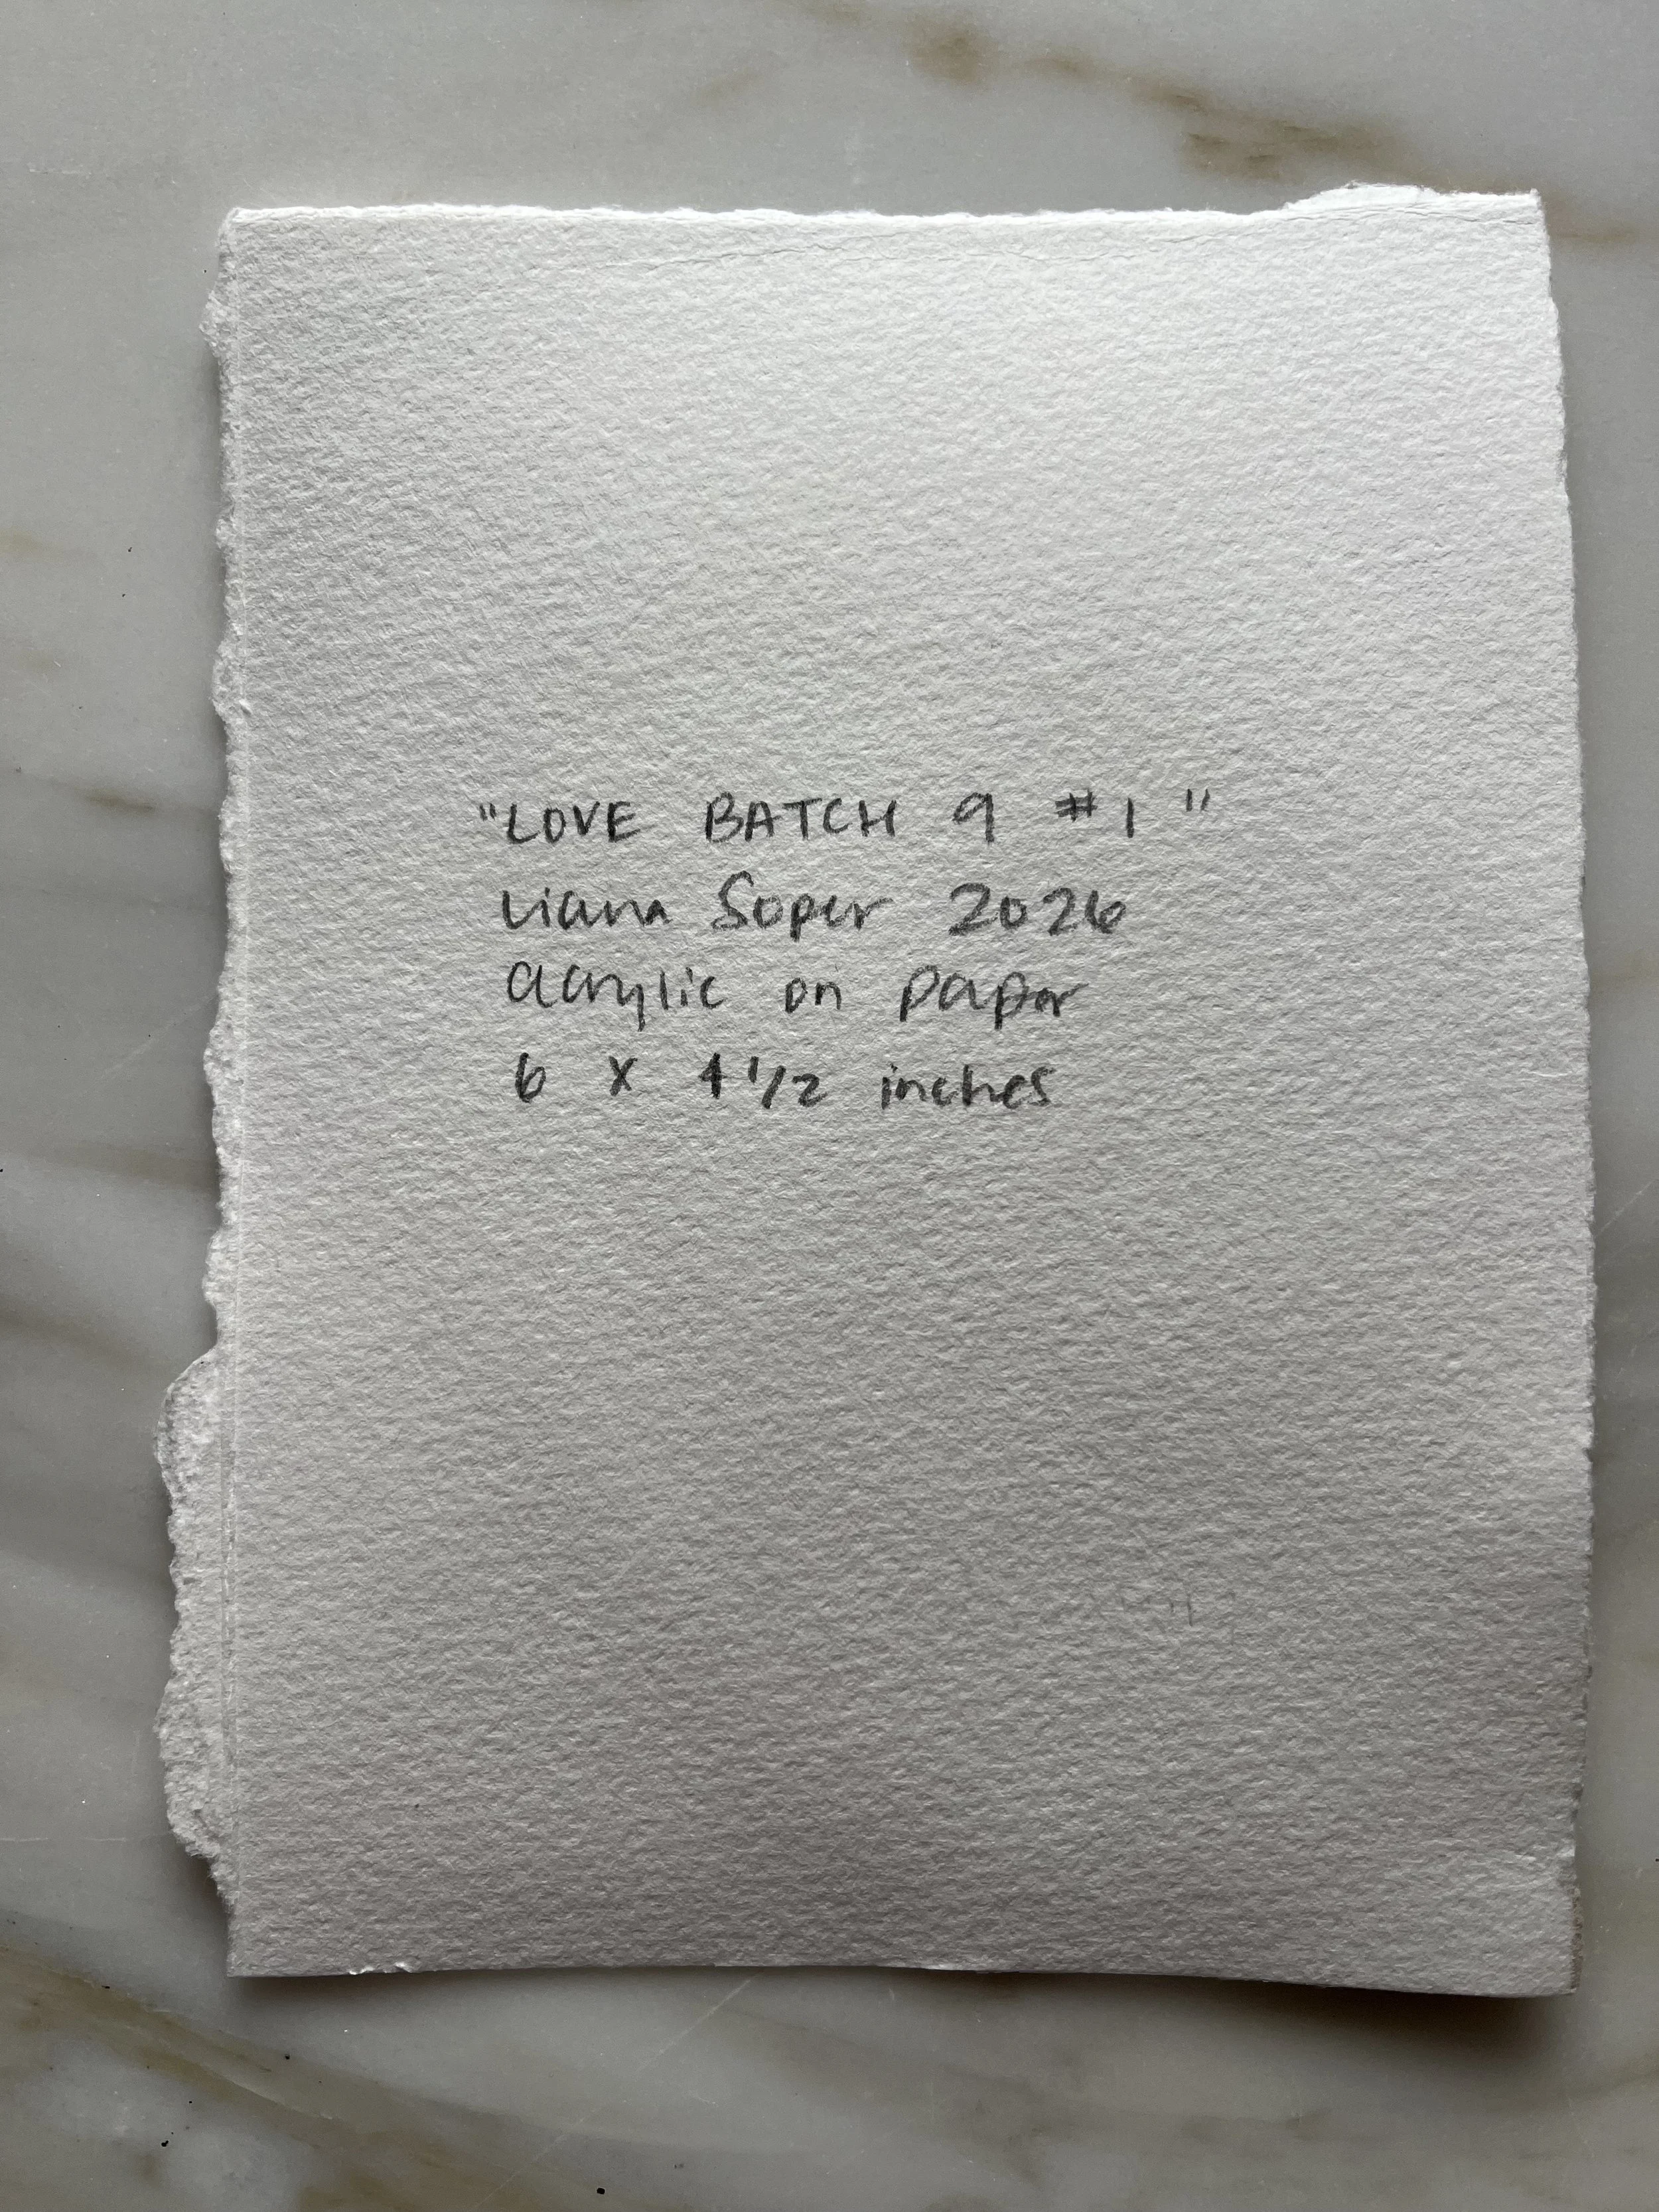 "LOVE BATCH 9 #1"
Liana Soper 2026
acrylic on paper
6 x 4 1/2 inches